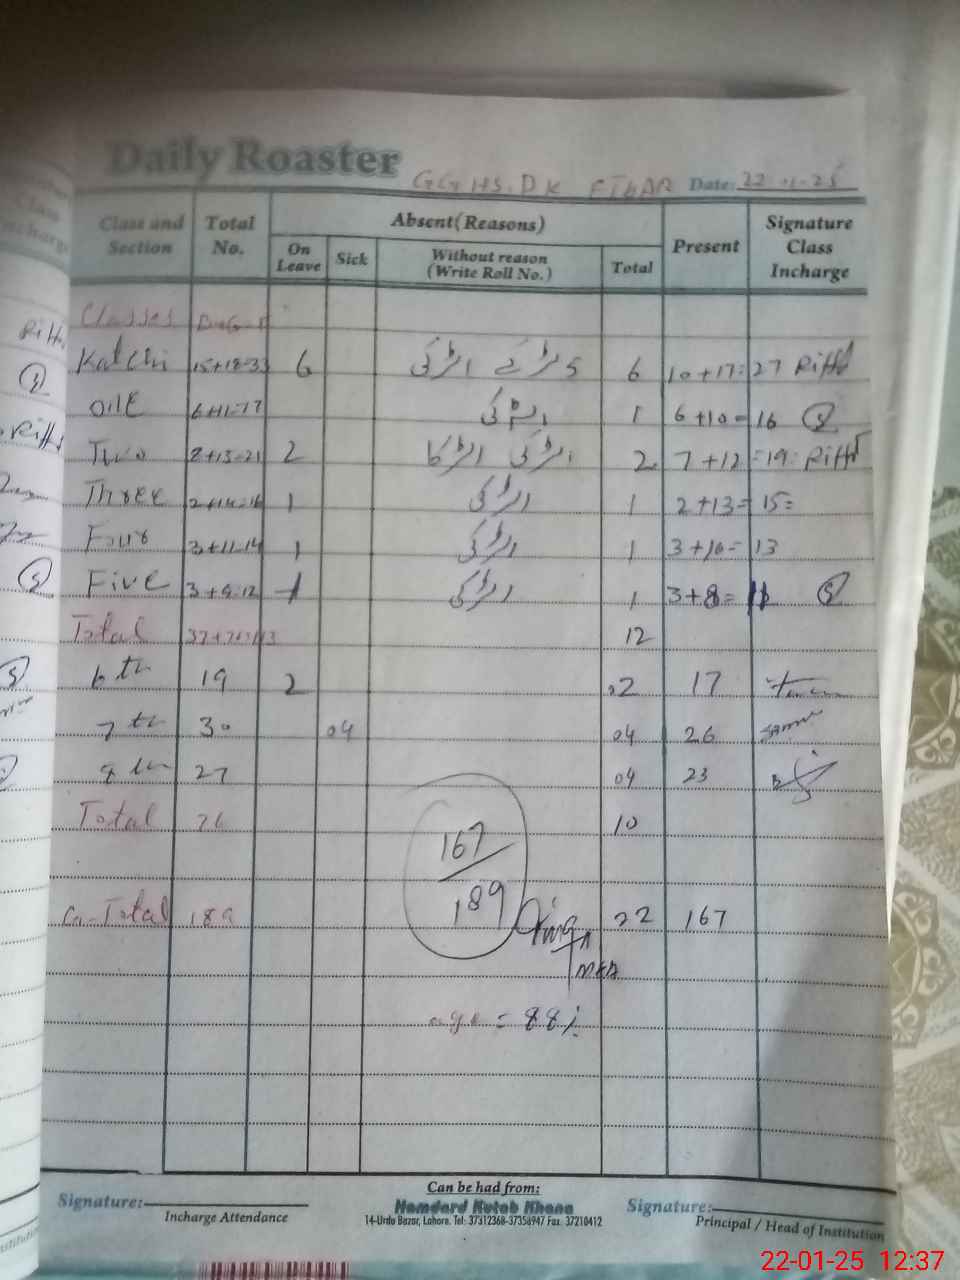 Daily Roaster
GGHS.DK Date: 22-1-25
Class and Section Total No. Absent (Reasons) Present Signature Class Incharge
On Leave Sick Without reason (Write Roll No.) Total
Classes B+G=T
Katchi 15+18=33 6 5 لڑکے 1 لڑکی 6 10+17=27 Riffat
One 6+11=17 1 لڑکی 1 6+10=16
Two 8+13=21 2 1 لڑکی 1 لڑکا 2 7+12=19= Riffat
Three 2+14=16 1 1 لڑکی 1 2+13=15=
Four 3+11=14 1 1 لڑکی 1 3+10=13
Five 3+9=12 1 1 لڑکی 1 3+8=11
Total 37+76=113 12
6th 19 2 02 17
7th 30 04 04 26
8th 27 04 23
Total 76 10
167
189
G-Total 189 22 167
age = 88%
Signature: Can be had from: Signature:
Incharge Attendance Hamdard Kutab Khana Principal / Head of Institution
14-Urdu Bazar, Lahore. Tel: 37312368-37358947 Fax. 37210412
22-01-25 12:37